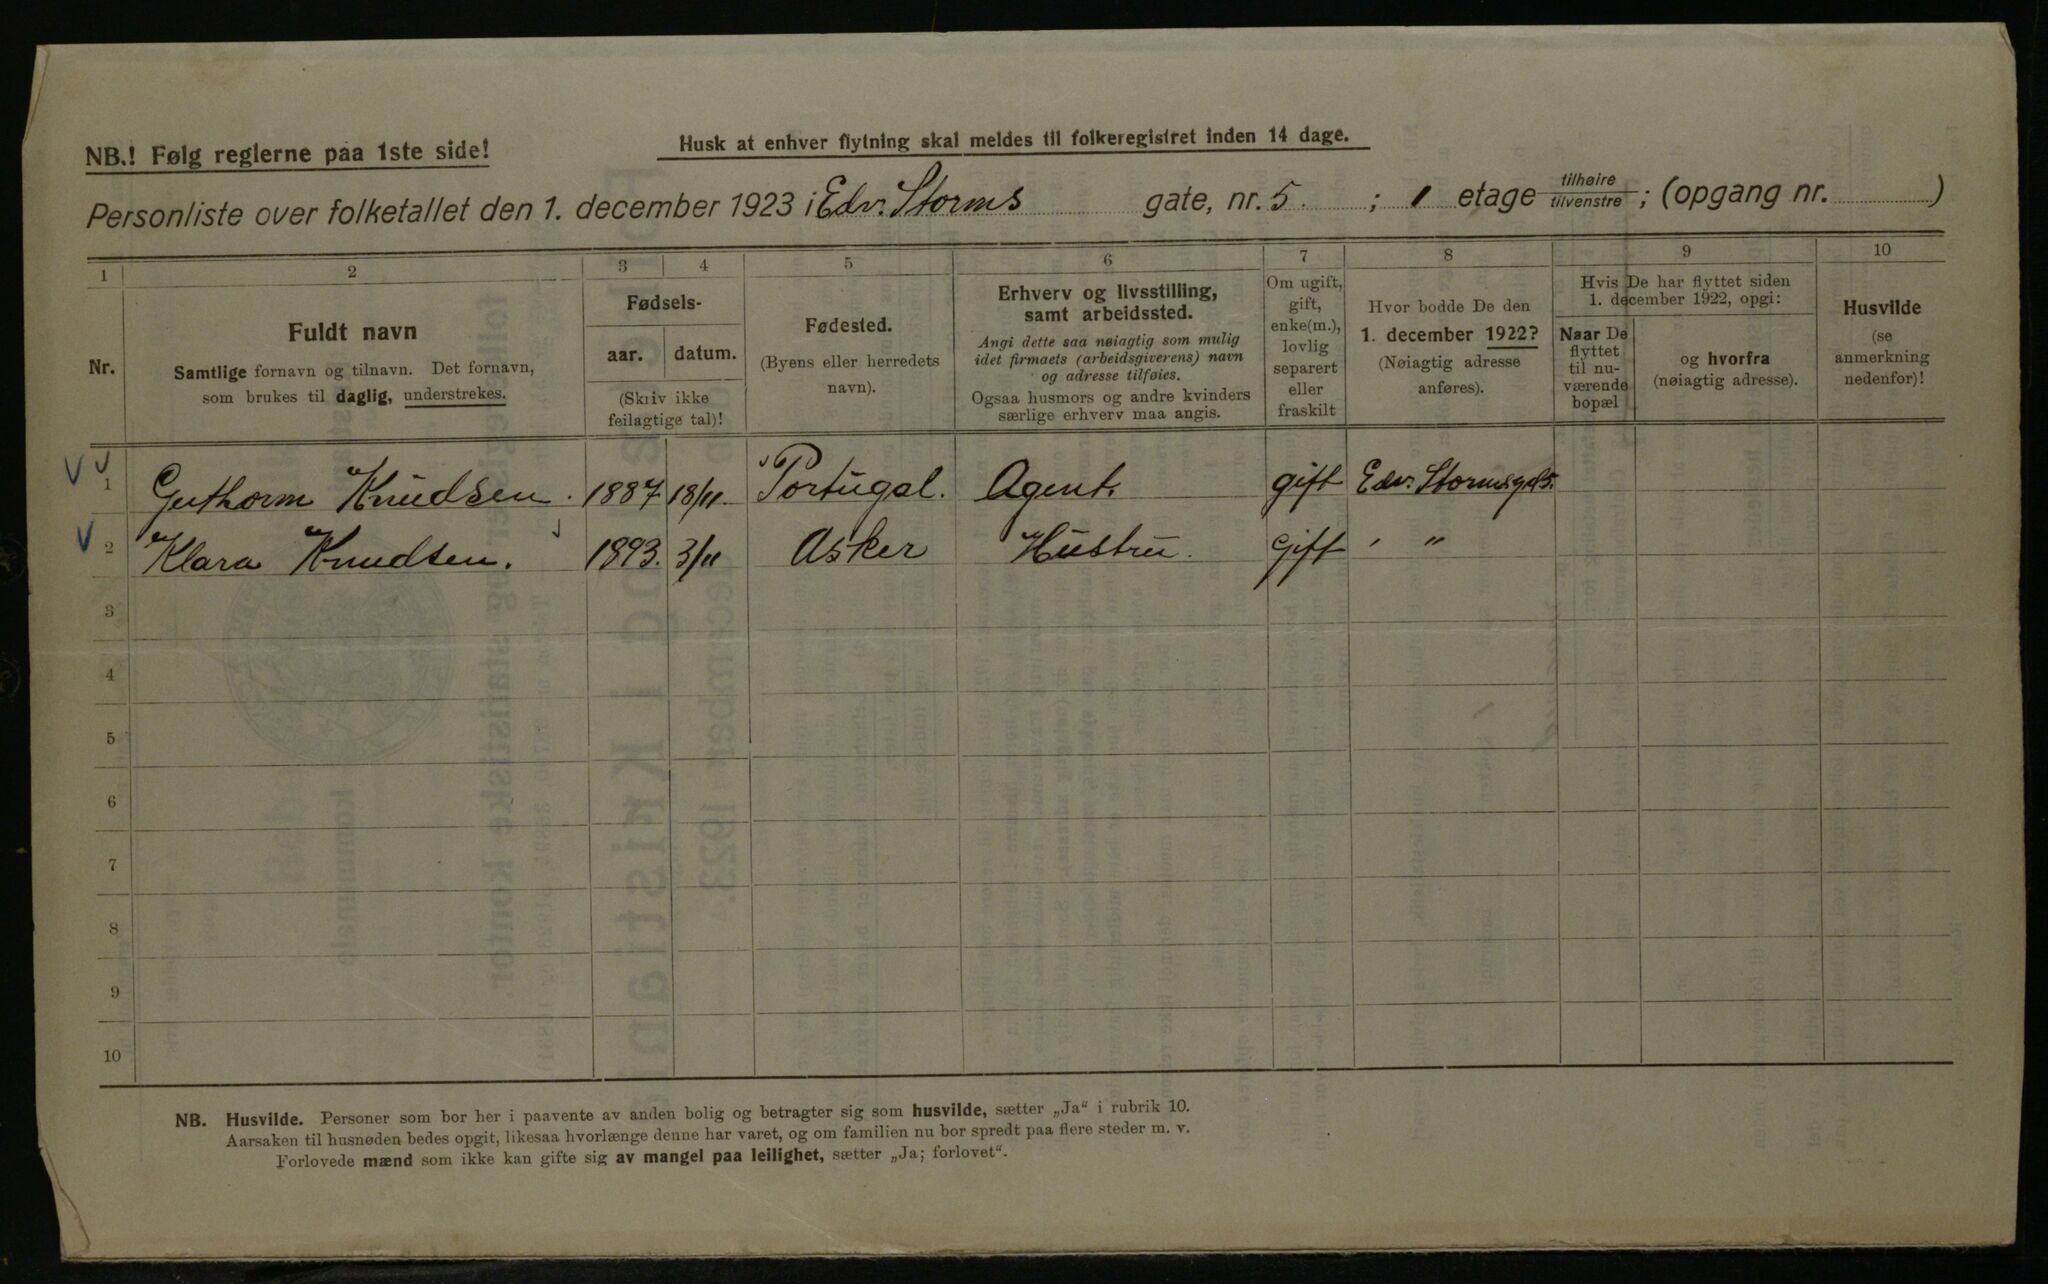 NB.! Følg reglerne paa 1ste side!
Husk at enhver flytning skal meldes til folkeregistret inden 14 dage.
Personliste over folketallet den 1. december 1923 i Edv. Storms gate, nr. 5. ; 1 etage tilhøire/tilvenstre; (opgang nr. )
1 2 3 4 5 6 7 8 9 10
Nr.
Fuldt navn
Samtlige fornavn og tilnavn. Det fornavn,
som brukes til daglig, understrekes.
Fødsels-
aar. datum.
(Skriv ikke
feilagtige tal)!
Fødested.
(Byens eller herredets
navn).
Erhverv og livsstilling,
samt arbeidssted.
Angi dette saa nøiagtig som mulig
idet firmaets (arbeidsgiverens) navn
og adresse tilføies.
Ogsaa husmors og andre kvinders
særlige erhverv maa angis.
Om ugift,
gift,
enke(m.),
lovlig
separert
eller
fraskilt
Hvor bodde De den
1. december 1922?
(Nøiagtig adresse
anføres).
Hvis De har flyttet siden
1. december 1922, opgi:
Naar De
flyttet
til nu-
værende
bopæl
og hvorfra
(nøiagtig adresse).
Husvilde
(se
anmerkning
nedenfor)!
1 Guthorm Knudsen. 1887 18/11. Portugal. Agent. gift Edv. Stormsgt 5.
2 Klara Knudsen. 1893. 3/11 Asker Hustru. Gift " "
3
4
5
6
7
8
9
10
NB. Husvilde. Personer som bor her i paavente av anden bolig og betragter sig som husvilde, sætter „Ja“ i rubrik 10.
Aarsaken til husnøden bedes opgit, likesaa hvorlænge denne har varet, og om familien nu bor spredt paa flere steder m. v.
Forlovede mænd som ikke kan gifte sig av mangel paa leilighet, sætter „Ja; forlovet“.